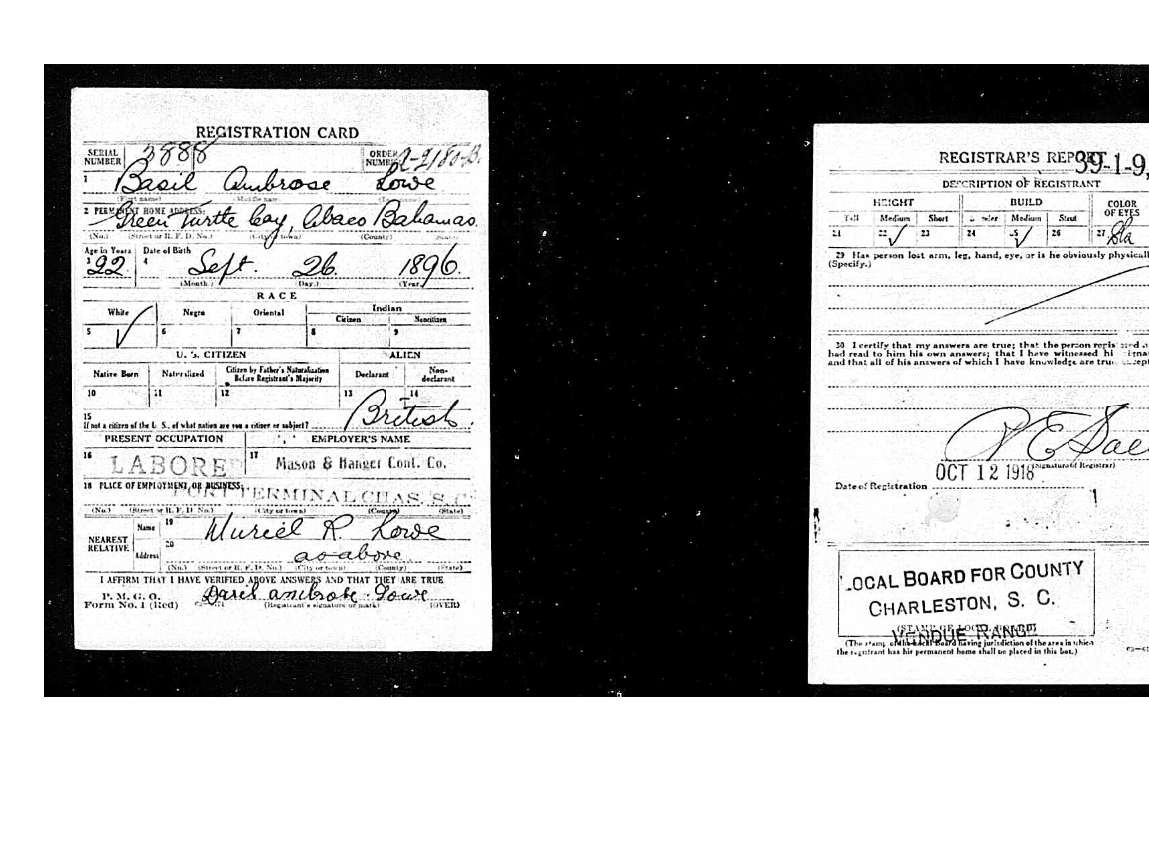 REGISTRATION CARD
SERIAL NUMBER 3888 ORDER NUMBER
1 Basil Ambrose Lowe
(First name) (Middle name) (Last name)
2 PERMANENT HOME ADDRESS:
Green Turtle Cay, Abaco Bahamas.
(No.) (Street or R. F. D. No.) (City or town) (County) (State)
Age in Years Date of Birth
3 22 4 Sept. 26. 1896.
(Month.) (Day.) (Year.)
RACE
White Negro Oriental Indian
Citizen Noncitizen
5 6 7 8 9
U. S. CITIZEN ALIEN
Native Born Naturalized Citizen by Father's Naturalization Before Registrant's Majority Declarant Non-declarant
10 11 12 13 14
15
If not a citizen of the U. S., of what nation are you a citizen or subject? British.
PRESENT OCCUPATION EMPLOYER'S NAME
16 LABORE 17 Mason & Hanger Cont. Co.
18 PLACE OF EMPLOYMENT OR BUSINESS:
PORT TERMINAL CHAS. S. C.
(No.) (Street or R. F. D. No.) (City or town) (County) (State)
NEAREST RELATIVE Name 19 Muriel R. Lowe
Address 20 as above.
(No.) (Street or R. F. D. No.) (City or town) (County) (State)
I AFFIRM THAT I HAVE VERIFIED ABOVE ANSWERS AND THAT THEY ARE TRUE
P. M. G. O.
Form No. 1 (Red) Basil Ambrose Lowe
(Registrant's signature or mark) (OVER)
REGISTRAR'S REPORT 39-1-9,
DESCRIPTION OF REGISTRANT
HEIGHT BUILD COLOR OF EYES
Tall Medium Short Slender Medium Stout
21 22 23 24 25 26 27
29 Has person lost arm, leg, hand, eye, or is he obviously physically
(Specify.)
30 I certify that my answers are true; that the person registered
had read to him his own answers; that I have witnessed his
and that all of his answers of which I have knowledge are true,
(Signature of Registrar)
OCT 12 1918
Date of Registration
LOCAL BOARD FOR COUNTY
CHARLESTON, S. C.
(STAMP OF LOCAL BOARD)
VENDUE RANGE
(The stamp of the Local Board having jurisdiction of the area in which
the registrant has his permanent home shall be placed in this box.)